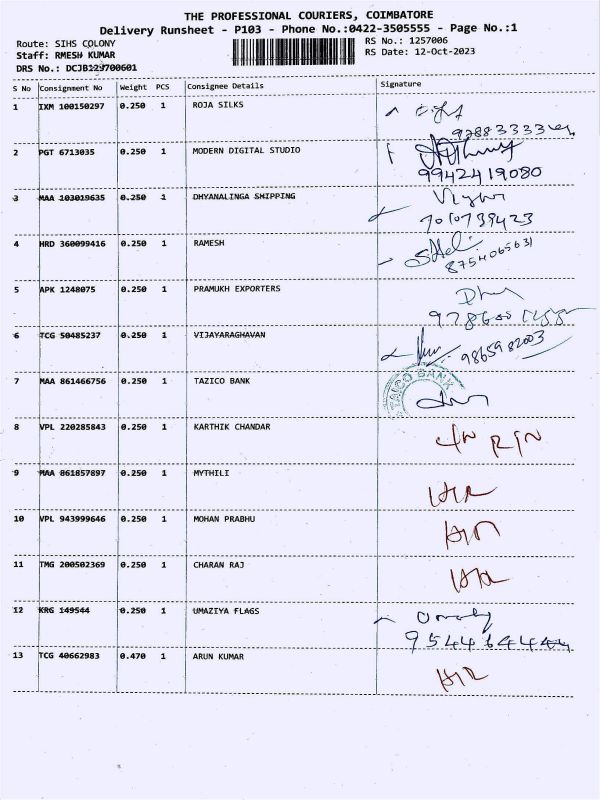 THE PROFESSIONAL COURIERS, COIMBATORE
Delivery Runsheet - P103 - Phone No.:0422-3505555 - Page No.:1
Route: SIHS COLONY RS No.: 1257006
Staff: RMESH KUMAR RS Date: 12-Oct-2023
DRS No.:
S No Consignment No Weight PCS Consignee Details Signature
1 IXM 100150297 0.250 1 ROJA SILKS
2 PGT 6713035 0.250 1 MODERN DIGITAL STUDIO
9942419080
3 MAA 103019635 0.250 1 DHYANALINGA SHIPPING
7010739423
4 HRD 360099416 0.250 1 RAMESH
8754065631
5 APK 1248075 0.250 1 PRAMUKH EXPORTERS
6 TCG 50485237 0.250 1 VIJAYARAGHAVAN
9865982003
7 MAA 861466756 0.250 1 TAZICO BANK
TAICO BANK
8 VPL 220285843 0.250 1 KARTHIK CHANDAR
9 MAA 861857897 0.250 1 MYTHILI
10 VPL 943999646 0.250 1 MOHAN PRABHU
11 TMG 200502369 0.250 1 CHARAN RAJ
12 KRG 149544 0.250 1 UMAZIYA FLAGS
13 TCG 40662983 0.470 1 ARUN KUMAR